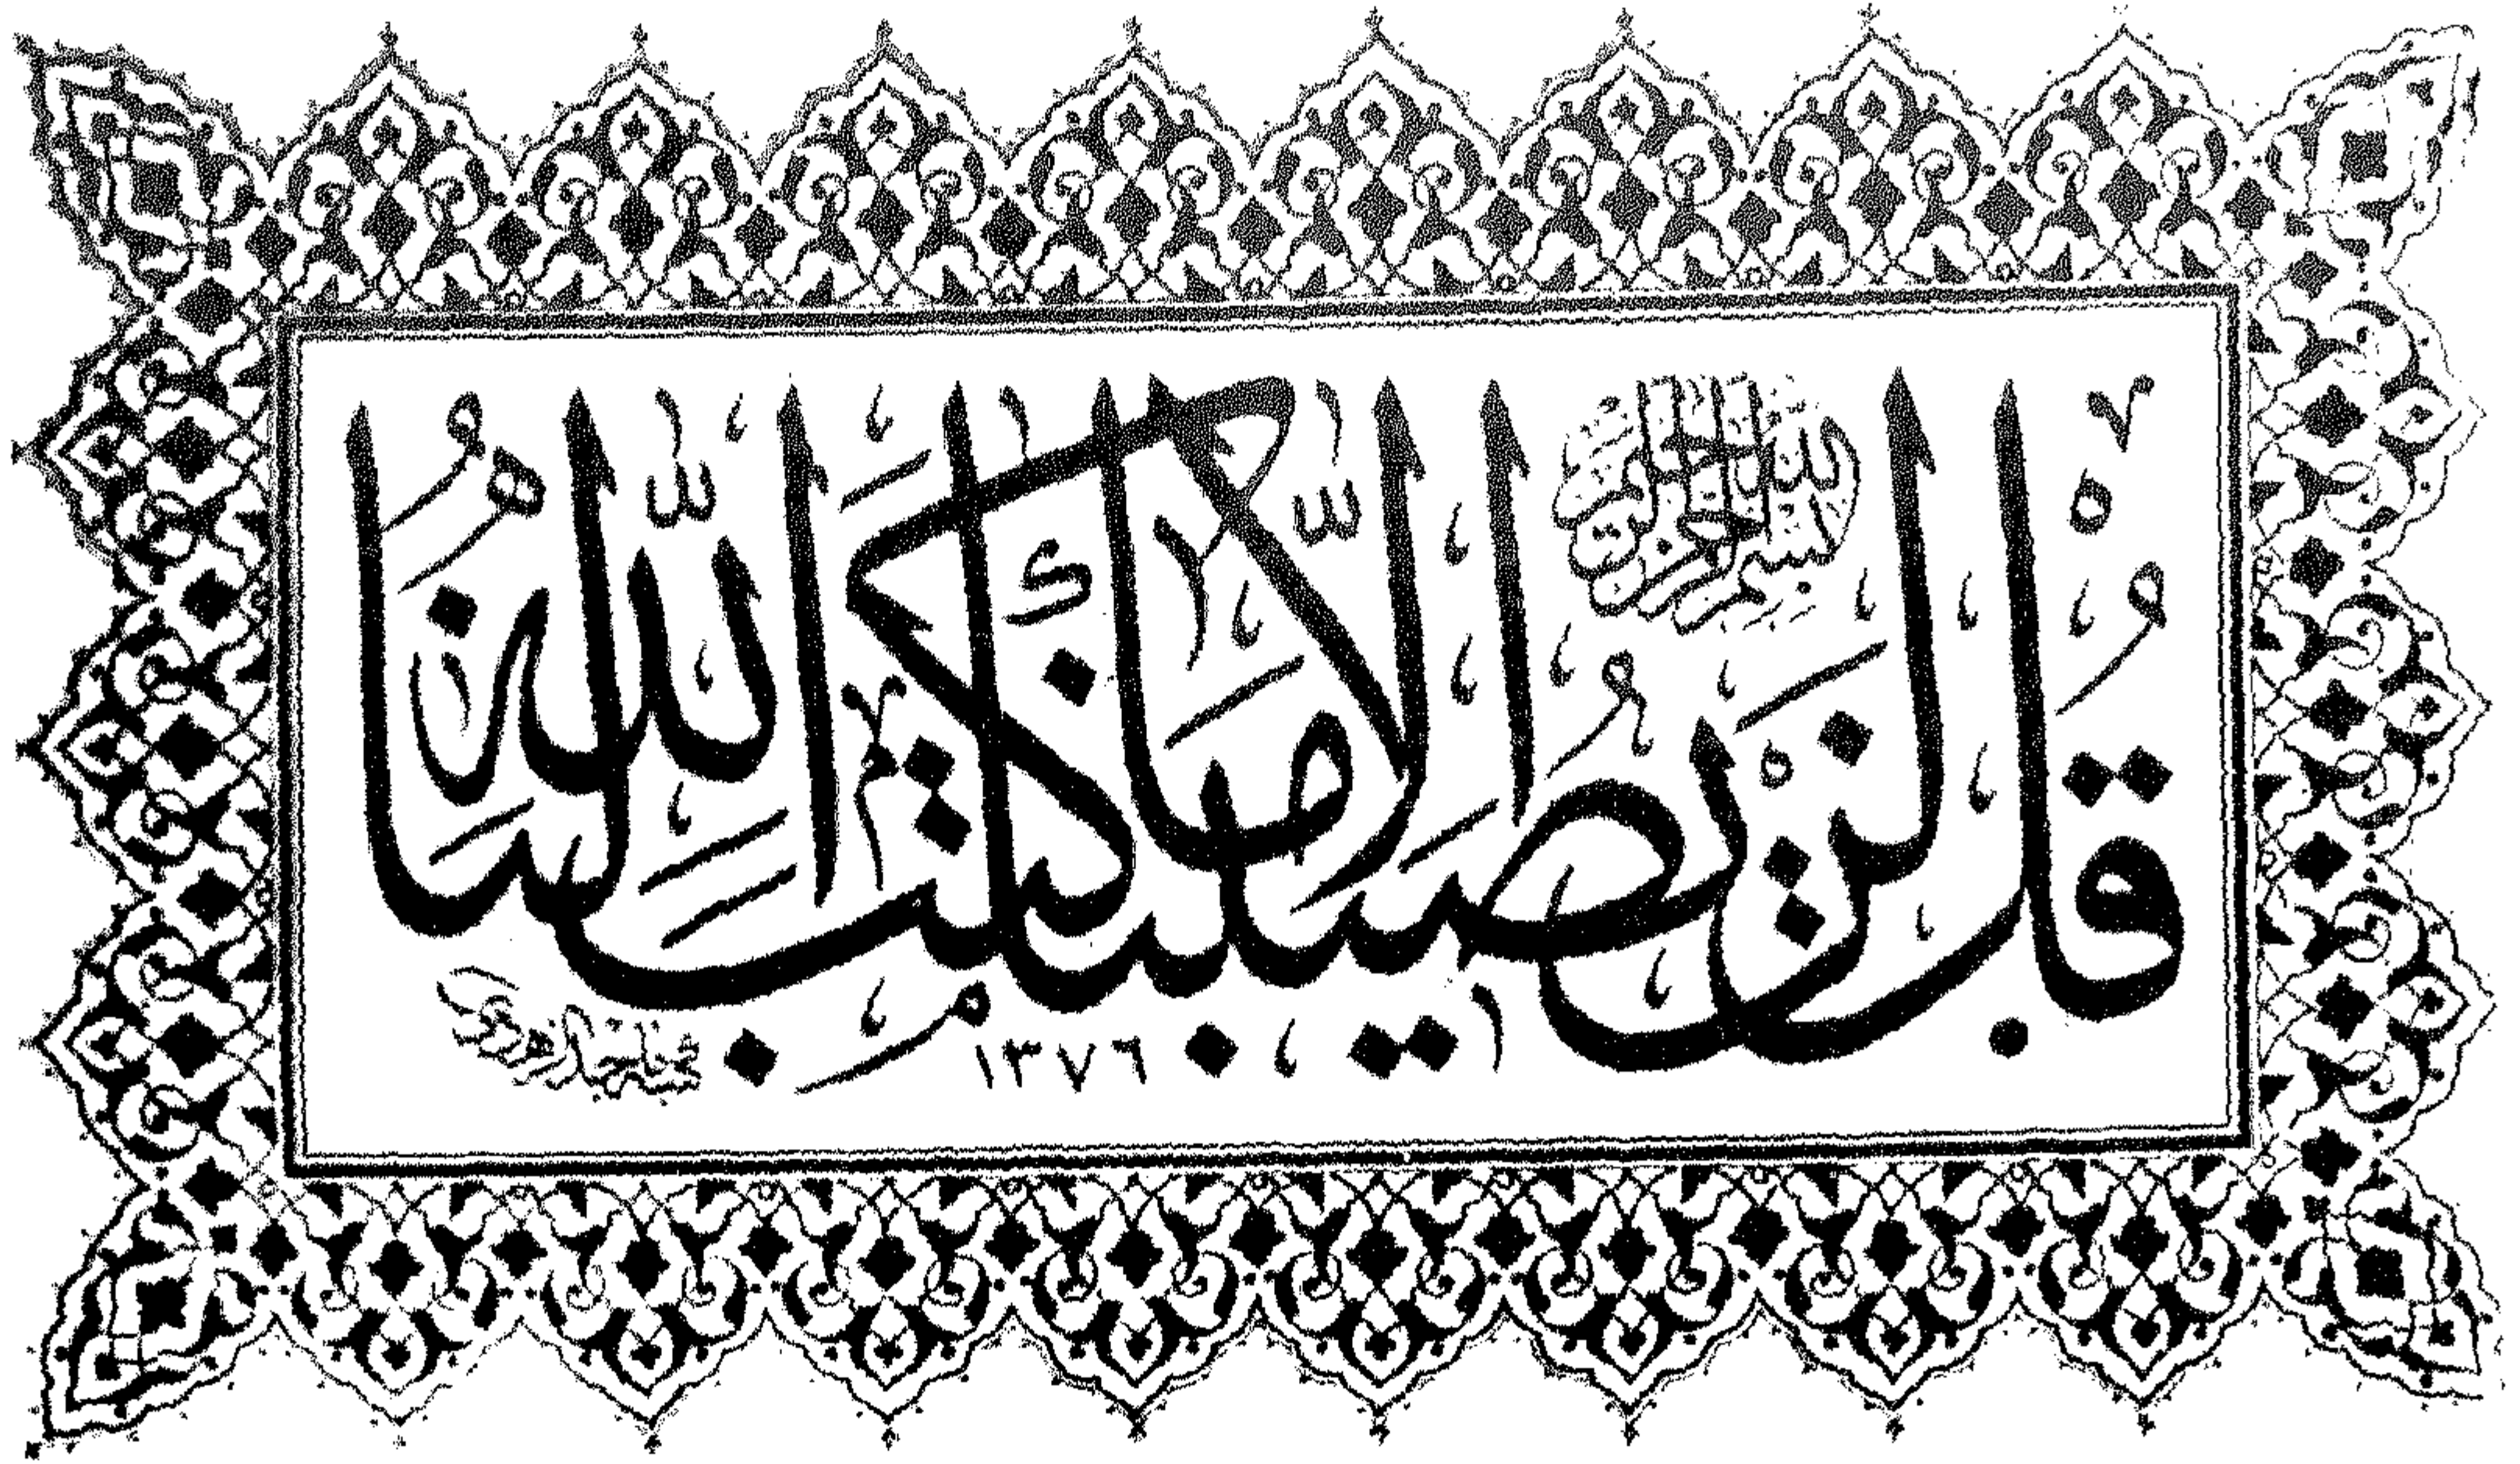 بسم الله الرحمن الرحيم
قُلْ لَنْ يُصِيبَنَا إِلَّا مَا كَتَبَ اللَّهُ لَنَا
١٣٧٦